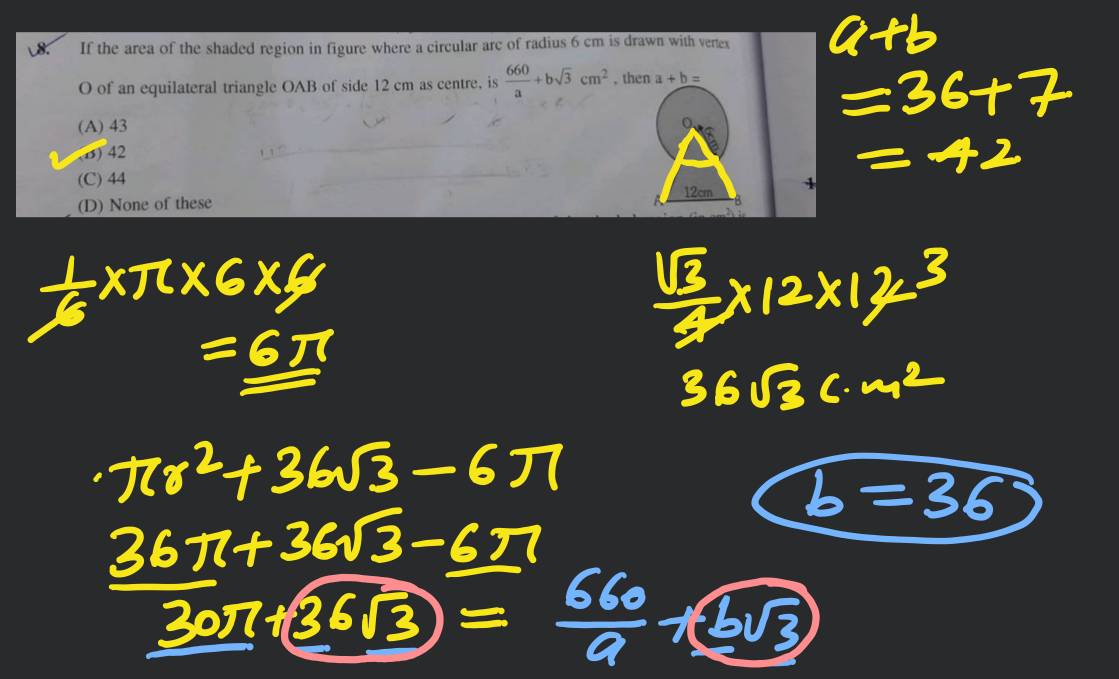 8. If the area of the shaded region in figure where a circular arc of radius 6 cm is drawn with vertex
O of an equilateral triangle OAB of side 12 cm as centre, is 660/a + b√3 cm², then a + b =
(A) 43
(B) 42
(C) 44
(D) None of these
O
6cm
A 12cm B
a+b
=36+7
=42
1/6 × π × 6 × 6
= 6π
√3/4 × 12 × 12 3
36√3 c.m²
πr² + 36√3 - 6π
36π + 36√3 - 6π
30π + 36√3 = 660/a + b√3
b = 36